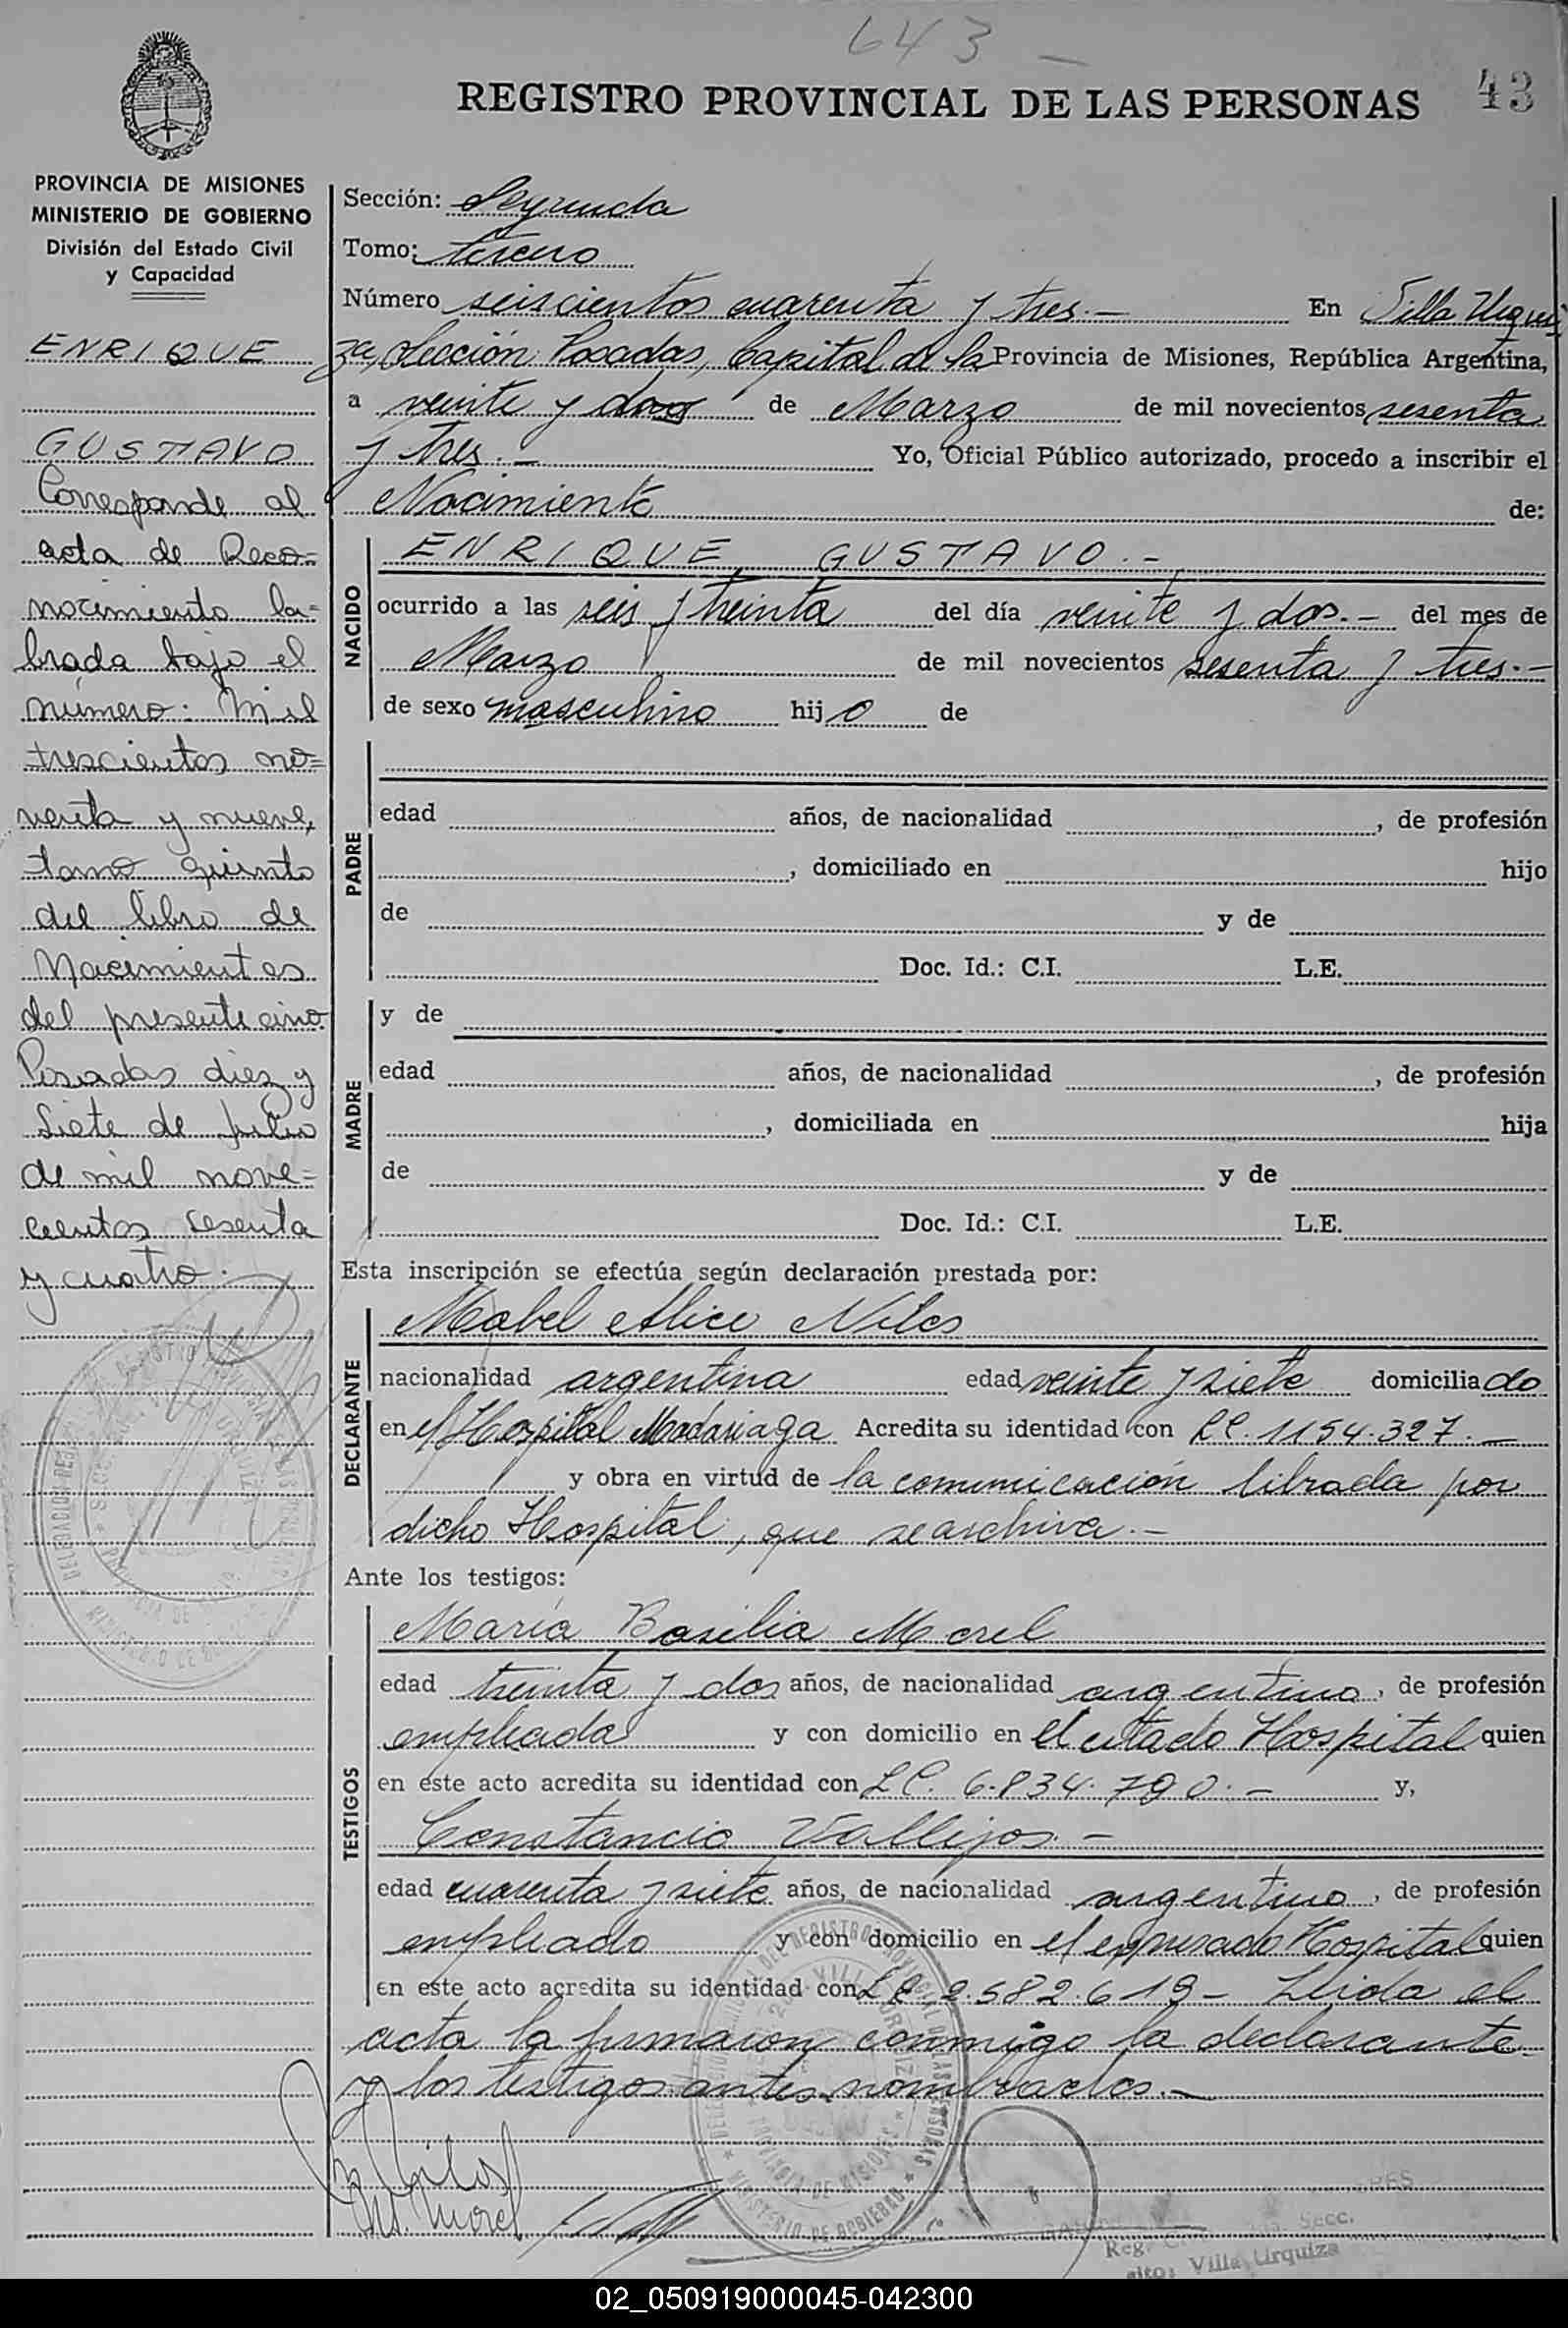 643 -
REGISTRO PROVINCIAL DE LAS PERSONAS 43
PROVINCIA DE MISIONES
MINISTERIO DE GOBIERNO
División del Estado Civil
y Capacidad
ENRIQUE
GUSTAVO
Corresponde al
acta de Reco=
nocimiento la=
brada bajo el
número: Mil
trescientos no=
venta y nueve,
tomo quinto
del libro de
Nacimientos
del presente año.
Posadas diez y
siete de Julio
de mil nove=
cientos sesenta
y cuatro.-
Sección: Segunda
Tomo: tercero
Número seiscientos cuarenta y tres.- En Villa Urqui
za, Sección Posadas, Capital de la Provincia de Misiones, República Argentina,
a veinte y dos de Marzo de mil novecientos sesenta
y tres.- Yo, Oficial Público autorizado, procedo a inscribir el
Nacimiento de:
NACIDO
ENRIQUE GUSTAVO.-
ocurrido a las seis y treinta del día veinte y dos.- del mes de
Marzo de mil novecientos sesenta y tres.-
de sexo masculino hijo de
PADRE
edad años, de nacionalidad , de profesión
, domiciliado en hijo
de y de
Doc. Id.: C.I. L.E.
MADRE
y de
edad años, de nacionalidad , de profesión
, domiciliada en hija
de y de
Doc. Id.: C.I. L.E.
Esta inscripción se efectúa según declaración prestada por:
DECLARANTE
Mabel Alice Niles
nacionalidad argentina edad veinte y siete domiciliado
en el Hospital Madariaga Acredita su identidad con LC. 1154.327.-
y obra en virtud de la comunicación librada por
dicho Hospital, que se archiva.-
Ante los testigos:
TESTIGOS
María Basilia Morel
edad treinta y dos años, de nacionalidad argentina, de profesión
empleada y con domicilio en el citado Hospital quien
en este acto acredita su identidad con LC. 6.834.790.- y,
Constancio Vallejos.-
edad cuarenta y siete años, de nacionalidad argentino, de profesión
empleado y con domicilio en el expresado Hospital quien
en este acto acredita su identidad con LE 2.582.619- Leida el
acta la firmaron conmigo la declarante
y los testigos antes nombrados.-
M. Morel
Secc.
Villa Urquiza
02_050919000045-042300